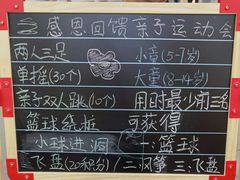 感恩回馈亲子运动会
两人三足 小童(5-7岁)
单摇(30个) 大童(8-14岁)
亲子双人跳(10个) 用时最少前三名
篮球绕桩 可获得
小球进洞 一:篮球
飞盘(20积分) 二:风筝 三:飞盘